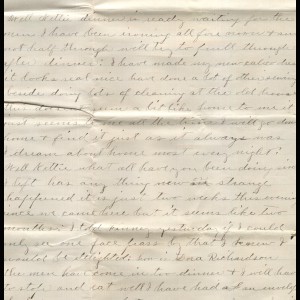 Well Hettie dinner is ready waiting for the
men I have been ironing all fore noon & am
not half through will try to finish through
after dinner? I have made my new calico dress
it looks real nice have done a lot of other sewing
besides doing lots of cleaning at the old house
this does seem a bit like home to me it
just seems all the time I will go down
home & find it just as it always was
I dream about home most every night?
Well Hettie what all have you been doing since
I left has any thing new or strange
happened it is just two weeks this evening
since we came here but it seems like two
months? I told Fanny yesterday if I could
only see one face (ess) by that I knew I
would be delighted. how is Ona Richardson
the men have come in to dinner & I will have
to stop and eat well I have had a